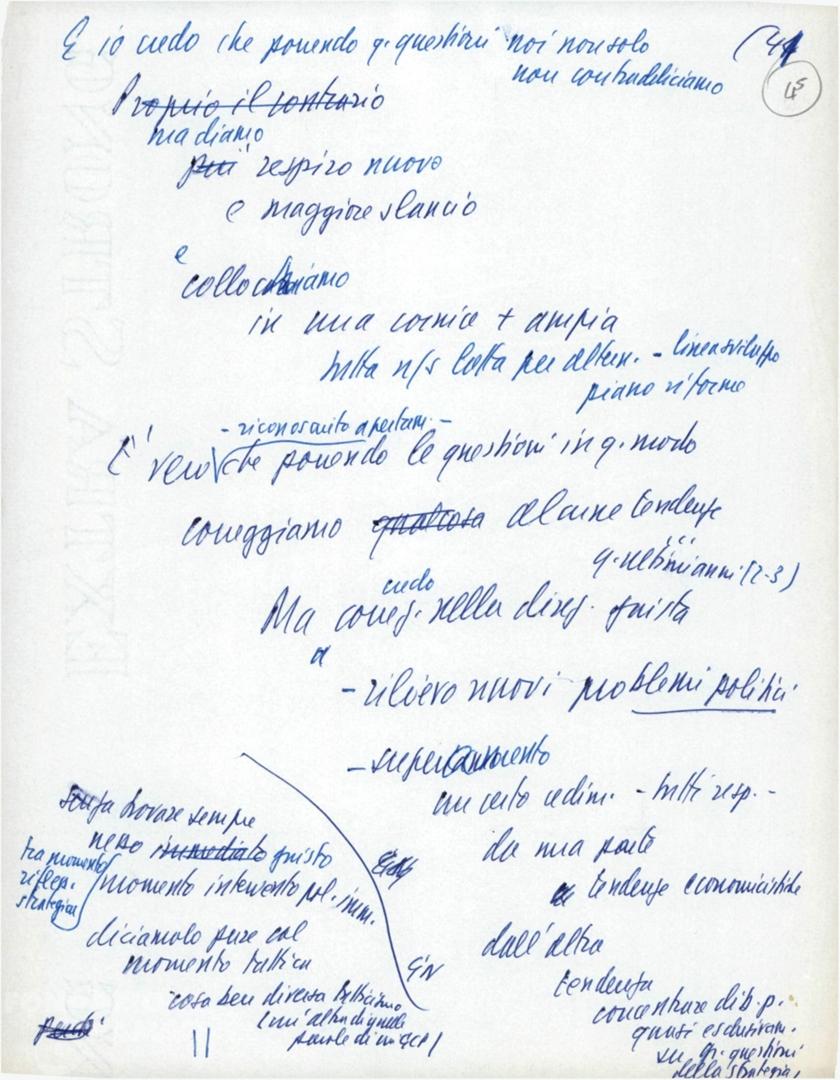 E io credo che ponendo q. questioni noi non solo
non contraddiciamo
(41
45
Proprio il contrario
ma diamo
più respiro nuovo
e maggiore slancio
e
collochiamo
in una cornice + ampia
tutta n/s lotta per altern. - linea sviluppo
piano riforme
- riconosciuto apertam. -
E' vero che ponendo le questioni in q. modo
correggiamo qualcosa alcune tendenze
q. ultimi anni (2-3)
credo
Ma correg. nella direz. giusta
a
- rilievo nuovi problemi politici
- superamento
un certo cedim. - tutti resp. -
da una parte
tendenze economicistiche
dall'altra
tendenza
concentrare dib. p.
quasi esclusivam.
su gr. questioni
della strategia,
senza trovare sempre
nesso immediato giusto
tra momento
rifless.
strategica
momento intervento pol. imm.
diciamolo pure col
momento tattica
cosa ben diversa tatticismo
parole di
però